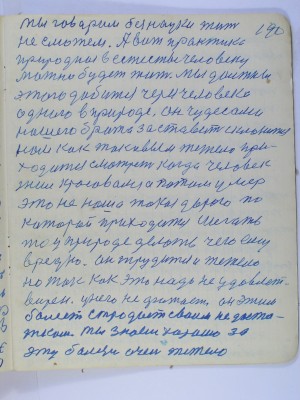 190
мы говорим без науки жить
не сможем. А вот практика
природная в естестве человеку
можно будет жить. мы должны
этого добится через человека
одного в природе. он чудесами
нашего брата заставит
нам как таковым тяжело при-
ходится смотреть когда человек
жил а потом умер
это не наша такая дорога по
которой приходится шегать
то у природе делать чего ему
вредно. он трудится тяжело
но так как это надо не удовлет-
у него не достаёт. он этим
болеет страдает своим недоста-
тком. мы знаем хорошо за
эту болезнь очен тяжело